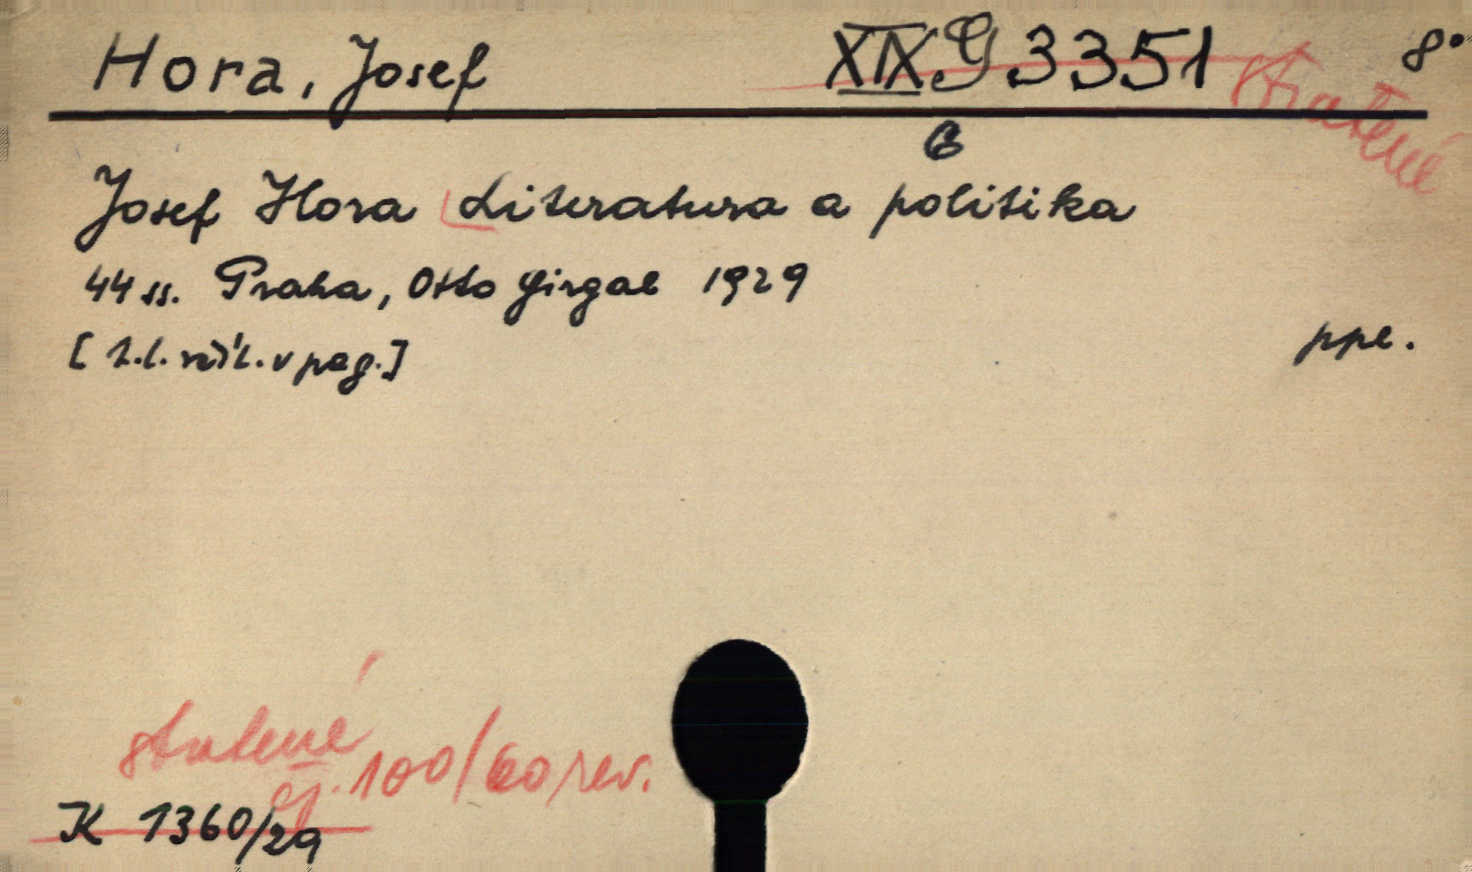 Hora, Josef XIX G 3351 stratené 8°
Josef Hora Literatura a politika
44 ss. Praha, Otto Girgal 1929
[t.l. včít. v pag.] ppe.
stratené
čj. 100/60 rev.
K 1360/29